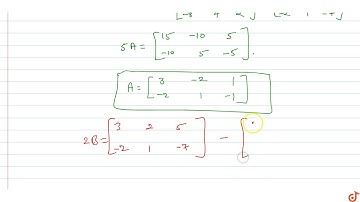 5A = [ 15 -10 5
-10 5 -5 ].
A = [ 3 -2 1
-2 1 -1 ]
2B = [ 3 2 5
-2 1 -7 ] - [